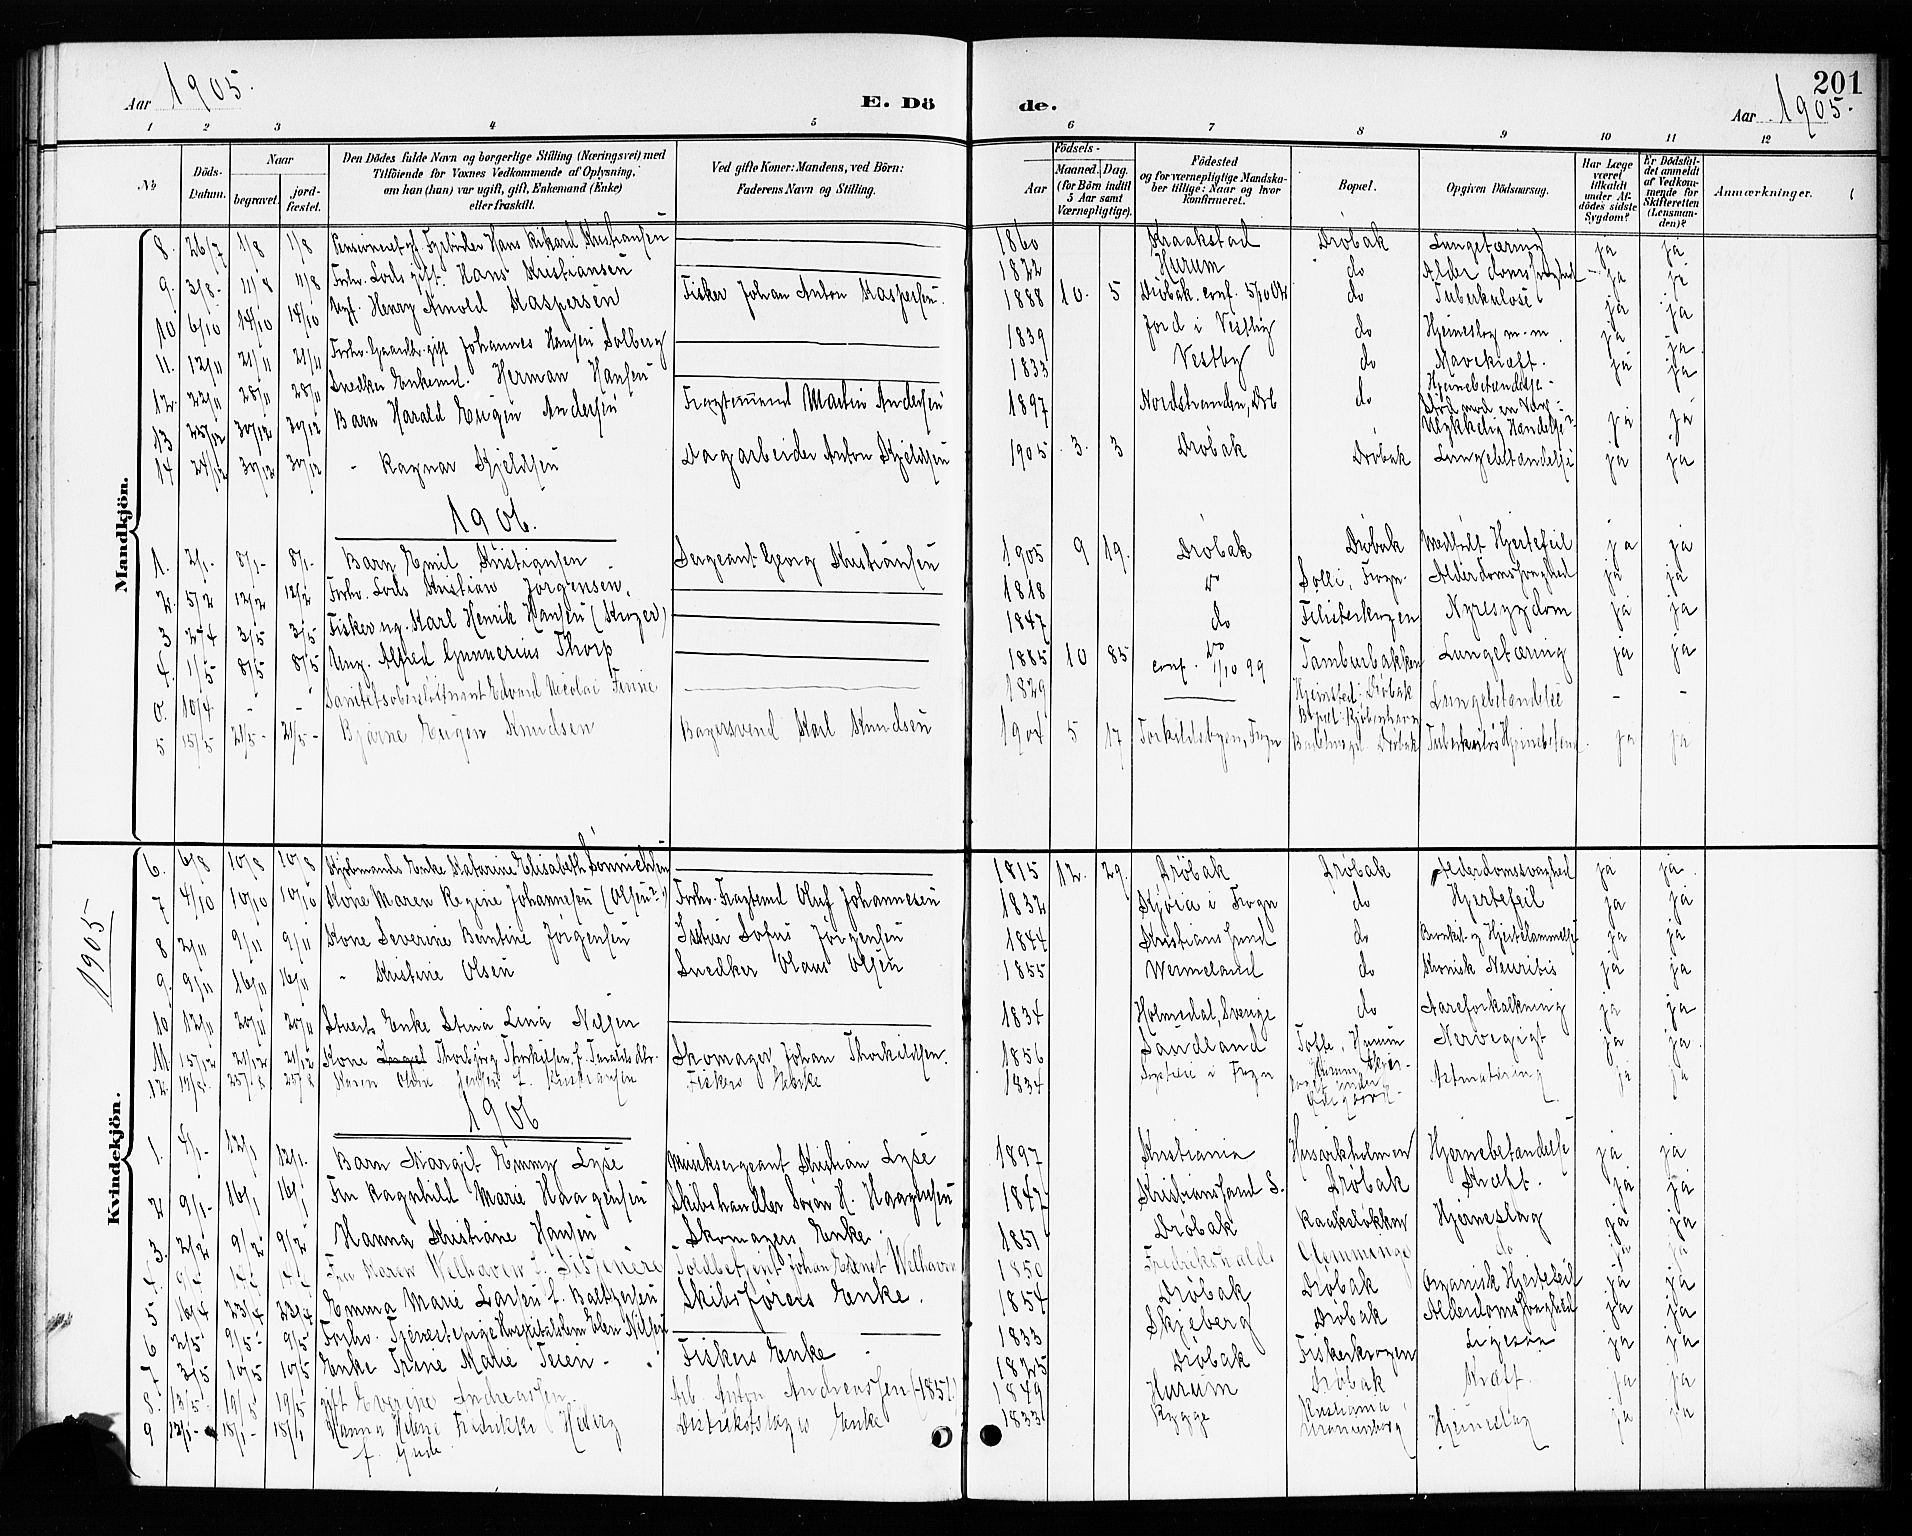 201
Aar 1905.
E. Dö
de.
Aar 1905.
1 2 3 4 5 6 7 8 9 10 11 12
No
Döds-Datum.
Naar
begravet.
jord-fæstet.
Den Dödes fulde Navn og borgerlige Stilling (Næringsvei) med
Tilföiende for Voxnes Vedkommende af Oplysning,
om han (hun) var ugift, gift, Enkemand (Enke)
eller fraskilt.
Ved gifte Koner: Mandens, ved Börn:
Faderens Navn og Stilling.
Födsels-
Aar
Maaned. Dag.
(for Börn indtil
5 Aar samt
Værnepligtige).
Födested
og for værnepligtige Mandska-
ber tillige: Naar og hvor
konfirmeret.
Bopæl.
Opgiven Dödsaarsag.
Har Læge
været
tilkaldt
under Af-
dödes sidste
Sygdom?
Er Dödsfal-
det anmeldt
af Vedkom-
mende for
Skifteretten
(Lensman-
den)?
Anmærkninger.
Mandkjön.
8. 26/7 1/8 1/8 Pensioneret gf. Fyrbøder Hans Rikard Kristiansen 1860 Kraakstad Drøbak Lungetæring ja ja
9. 3/8 11/8 11/8 Forhv. Lods gift Hans Kristiansen 1822 Hurum do Alderdomssvaghed ja ja
10 6/10 14/10 14/10 Ugf. Henry Arnold Kaspersen Fisker Johan Anton Kaspersen. 1888 10. 5 Drøbak. conf. 5/10 02 do Tuberkulose ja ja
11. 12/11 21/11 21/11 Forhv. Gaardbr. gift Johannes Hansen Solberg 1839 Jord i Vestby do Hjerneslag m.m. ja ja
12. 22/11 28/11 28/11 Snedker Enkemd. Herman Hansen 1833 Vestby do Mavekræft. ja ja
13 25/12 30/12 30/12 Barn Harald Eugen Andersen Fragtemand Martin Andersen 1897 Nordstranden, Drb do Hjernebetændelse - Stød mod en Væg - Ulykkelig Hændelse? ja ja
14 24/12 30/12 30/12 - Ragnar Kjeldsen Dagarbeider Anton Kjeldsen 1905 3. 3 Drøbak Drøbak Lungebetændelse ja ja
1906.
1. 2/1- 8/1- 8/1- Barn Emil Kristiansen Sergeant Georg Kristiansen 1905 9 19. Drøbak Drøbak Medfødt Hjertefeil ja ja
2. 5/2 12/2 12/2 Forhv. Lods Kristian Jørgensen. 1818 do Solli, Frogn. Alderdomssvaghed ja ja
3 27/4 3/5 3/5 Fisker ug. Karl Henrik Hansen (Kroger) 1847 do Fiskerkrogen Nyresygdom ja ja
4. 1/5 8/5 8/5 Ung. Alfred Gunnerius Thorp 1885 10 85 do conf. 1/10 99 Tamburbakken Lungetæring ja ja
0. 10/4 - - Sanitetsoberstløitnant Edvard Nicolai 1829 Hjemsted: Drøbak Bopæl: Kjøbenhavn Lungebetændelse - -
5 15/5 21/5- 21/5- Bjarne Eugen Knudsen Bagersvend Karl Knudsen 1904 5 17 Torkildsbyen, Frogn Drøbak Tuberkuløs Hjernebetænd. ja ja
1905
Kvindekjön.
6. 6/8 10/8 10/8 Kjøbmands Enke Katarine Elisabeth Sønnichsen 1815 12. 29. Drøbak Drøbak Alderdomssvaghed ja ja.
7 4/10 10/10 10/10 Kone Maren Regine Johannesen (Olsen?) Forhv. Fragtemd Oluf Johannesen 1832 Skjøia i Frogn do Hjertefeil ja ja
8 2/11 9/11 9/11 Kone Severine Berntine Jørgensen Sofus Jørgensen 1844 Kristianssund do Bronkit- og Hjertelammelse ja ja
9. 9/11 16/11 16/11 " Kristine Olsen Snedker Olaus Olsen 1855 Wermeland do Kronisk Neuritis ja ja
10 12/11 20/11 20/11 Stuerts Enke Stina Lena Nilsen 1834 Holmedal, Sverige do Aareforkalkning ja ja
11. 15/12 21/12 21/12 Kone Thorbjørg Thorkilsen, f. Taraldsdtr. Skomager Johan Thorkildsen. 1856 Sandland Tofte, Hurum Nervegigt ja ja.
12. 25/8 25/8 Maren Olava Jensen f. Kristiansen Fiskers Enke 1834 i Frogn ja ja
1906
1. 4/1- 12/1 12/1. Barn Margit Emmy Lyse Musiksergeant Kristian Lyse 1897 Kristiania Husvikholmen Hjernebetændelse ja ja
2 9/1- 16/1 16/1 Fru Ragnhild Marie Haagensen Skibshandler Søren H. Haagensen 1847 Kristianssand S. Drøbak Kræft. ja ja
3. 2/2 9/2 9/2 Hanna Kristiane Hansen Skomagers Enke. 1851 Drøbak Raakeløkken Hjerneslag ja ja
4. 9/4 14/4 14/4 Fru Maren Welhaven f. Toldbetjent Johan Ernst Welhaven 1850 Fredrikshald do ja ja
5 16/4 23/4 23/4 Emma Marie Larsen f. Baltzersen Skibsførers Enke. 1854 Drøbak Drøbak Organisk Hjertefeil ja ja
6 2/5 9/5 9/5 Forhv. Tjenestepige Hospitalslem Elen Nilsen 1833 Skjeberg Drøbak Alderdomssvaghed ja ja
7 3/5 10/5 10/5 Enke Trine Marie Teien - Fiskers Enke 1825 Drøbak Fiskerkrogen Ligesaa ja ja
8. 13/5. 19/5 19/5 gift Everine Andreassen Arb. Anton Andreassen (1857) 1849 Hurum Drøbak Kræft. ja ja
9 12/1- 18/1- 18/1 Hanna Helene Fredrikke Hiberg f. Gude Distriktslæges Enke 1833 Rygge Kristiania, Uranienborg Hjerneslag ja ja